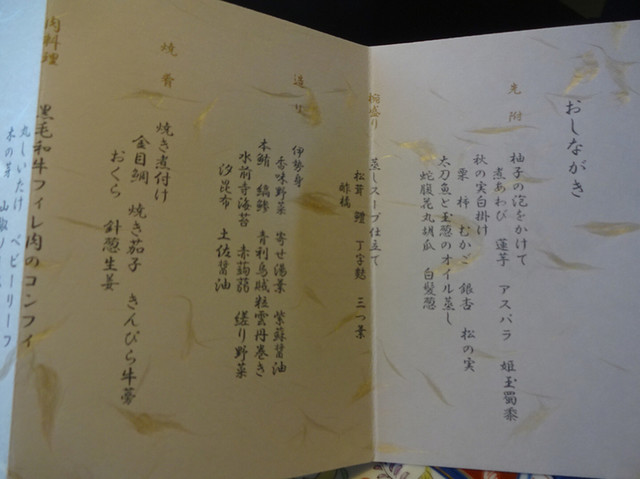 おしながき
先附
柚子の泡をかけて
煮あわび 蓮芋 アスパラ 姫玉蜀黍
秋の実白掛け
栗 柿 むかご 銀杏 松の実
太刀魚と玉葱のオイル蒸し
蛇腹花丸胡瓜 白髪葱
椀盛り
蒸しスープ仕立て
松茸 鱧 丁字麩 三つ葉
酢橘
造り
伊勢身
香味野菜 寄せ湯葉 紫蘇醤油
本鮪 縞鯵 青利烏賊粒雲丹巻き
水前寺海苔 赤蒟蒻 縒り野菜
汐昆布 土佐醤油
焼肴
焼き煮付け
金目鯛 焼き茄子 きんぴら牛蒡
おくら 針葱生姜
肉料理
黒毛和牛フィレ肉のコンフィ
丸しいたけ ベビーリーフ
木の芽 山椒ソース